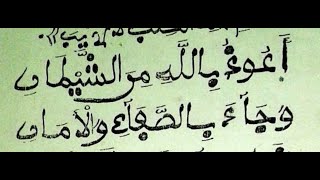 أَعُوذُ بِاللَّهِ مِنَ الشَّيْطَانِ
وَجَآءَ بِالصَّفَآءِ وَالْأَمَانِ